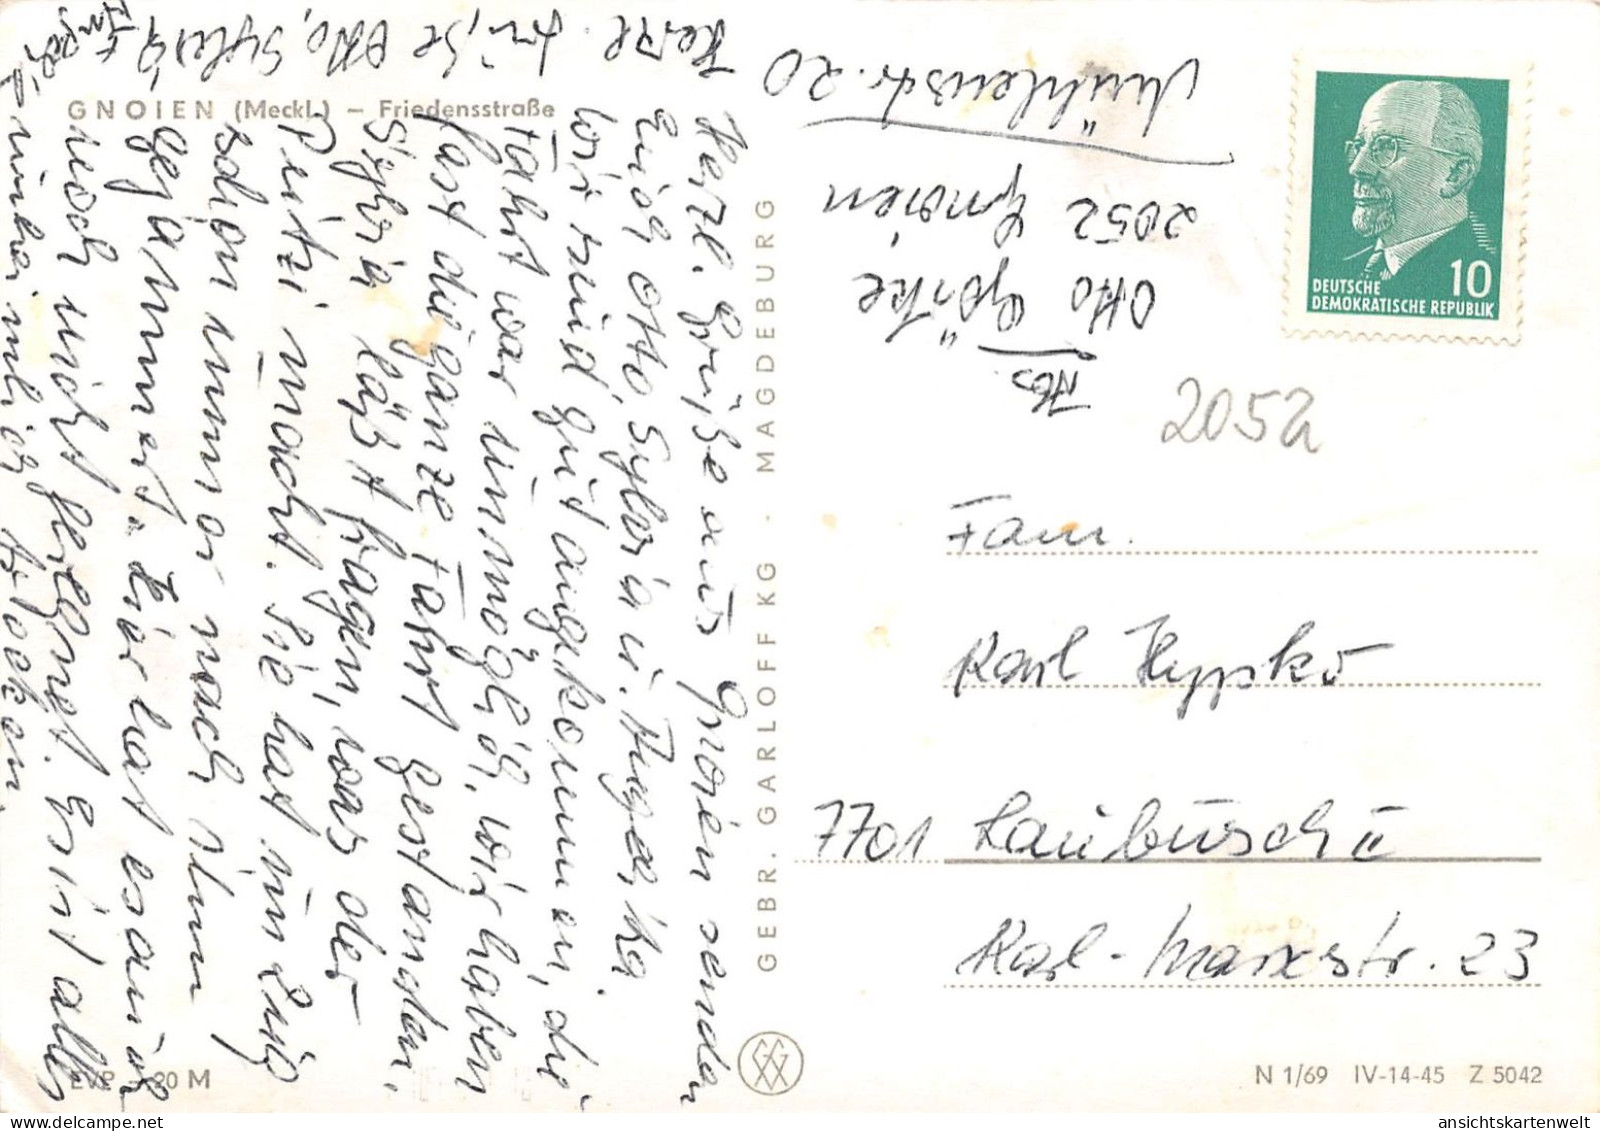 GNOIEN (Meckl.) – Friedensstraße
Herzl. Grüße aus Gnoien senden
Euch Otto, Sylvia u. Angelika.
Wir sind gut angekommen, die
Fahrt war unmöglich, wir haben
fast die ganze Fahrt gestanden.
Sylvia läßt fragen, was der
Putzi macht. Sie hat im Zug
schon immer nach ihm
gejammert. Hier hat es auch
noch nicht geregnet. Es ist alles
trocken.
Herzl. Grüße Otto, Sylvia
GEBR. GARLOFF KG · MAGDEBURG
EVP 20 M
Abs.
Otto Görke
2052 Gnoien
Mühlenstr. 20
DEUTSCHE
DEMOKRATISCHE REPUBLIK
10
2052
Fam.
Karl Hypko
7701 Laubusch II
Karl-Marxstr. 23
N 1/69 IV-14-45 Z 5042
ansichtskartenwelt